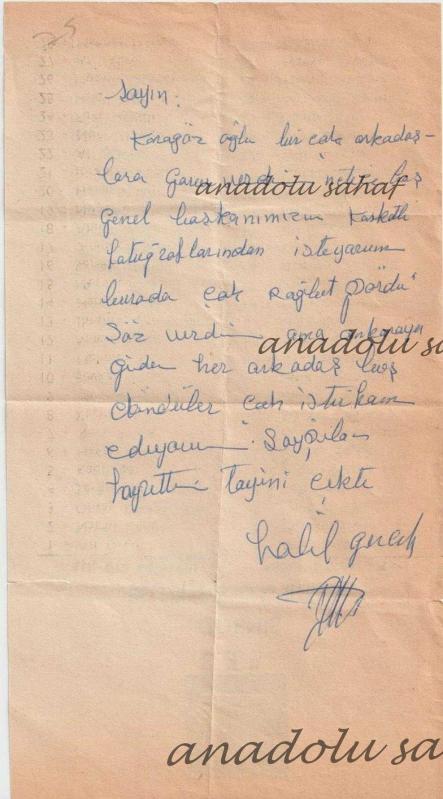 25
Sayın:
Karagöz oğlu bir çok arkadaş-
lara
anadolu sahaf
Genel başkanımızın kasketli
fotuğraflarından isteyorum
burada çok rağbet gördü
Söz verdim ama ankaraya
anadolu sa
giden her arkadaş boş
döndüler çok istirham
ediyorum. Saygılar
hayrettin tayini çıktı
halil
anadolu sa